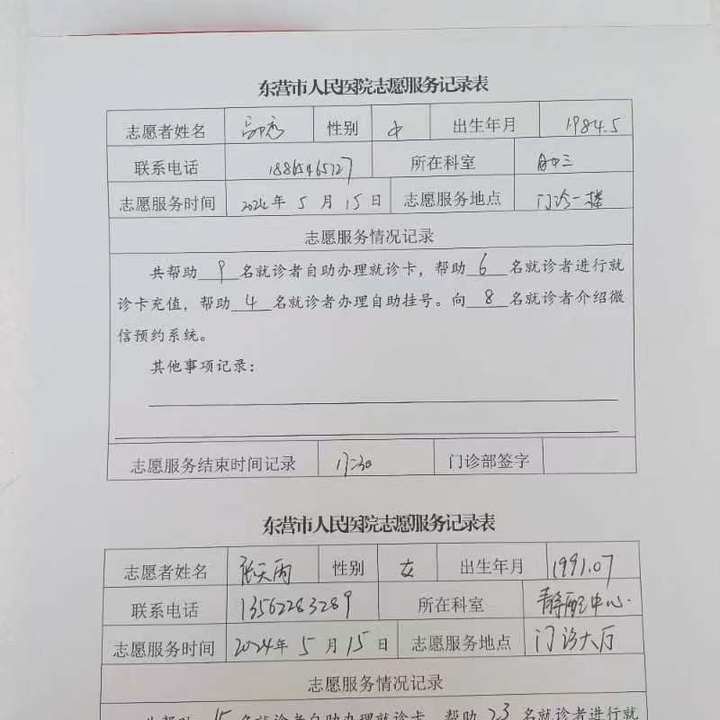 东营市人民医院志愿服务记录表
志愿者姓名 性别 出生年月 1984.5
联系电话 18865465727 所在科室
志愿服务时间 2024年 5 月 15 日 志愿服务地点 门诊一楼
志愿服务情况记录
共帮助 9 名就诊者自助办理就诊卡，帮助 6 名就诊者进行就
诊卡充值，帮助 4 名就诊者办理自助挂号。向 8 名就诊者介绍微
信预约系统。
其他事项记录：
志愿服务结束时间记录 17:30 门诊部签字
东营市人民医院志愿服务记录表
志愿者姓名 张天雨 性别 女 出生年月 1991.07
联系电话 13562283289 所在科室 静配中心.
志愿服务时间 2024年 5 月 15 日 志愿服务地点 门诊大厅
志愿服务情况记录
共帮助 15 名就诊者自助办理就诊卡，帮助 23 名就诊者进行就